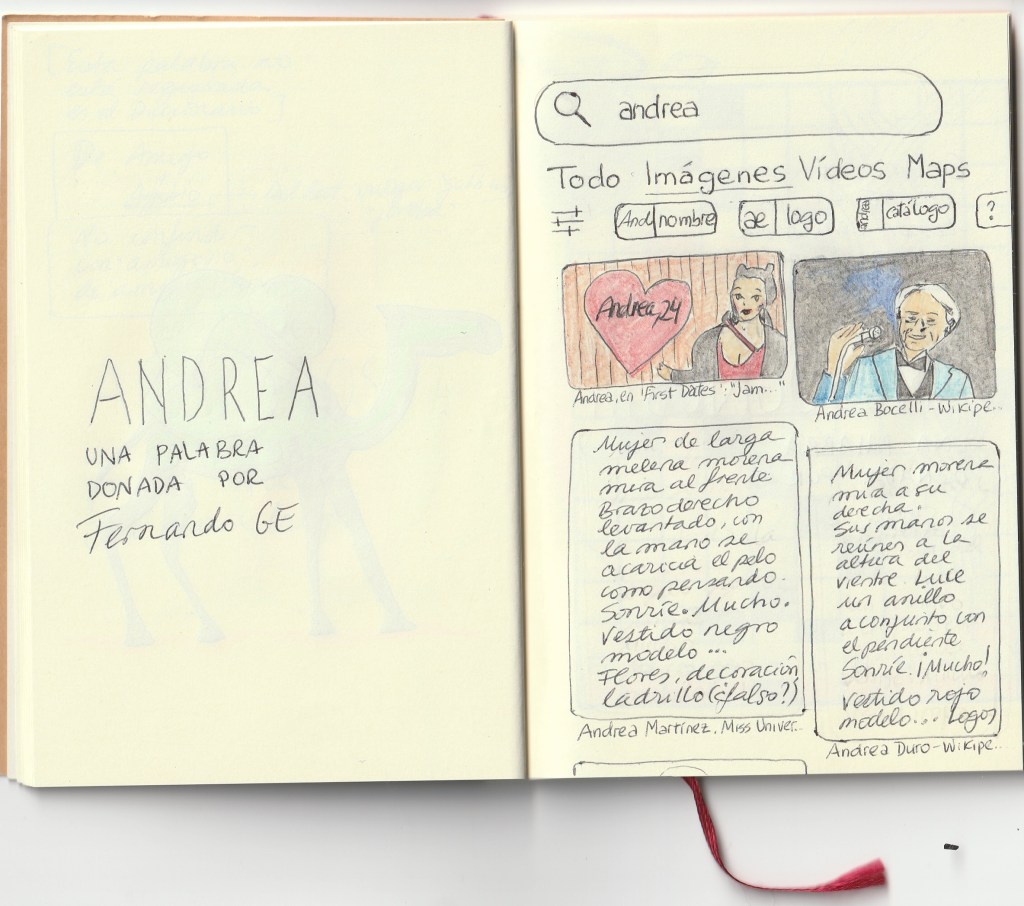 ANDREA
UNA PALABRA
DONADA POR
Fernando GE
andrea
Todo Imágenes Vídeos Maps
And nombre
ae logo
andrea catálogo
?
Andrea, 24
Andrea, en 'First Dates': "Jam..."
Andrea Bocelli - Wikipe...
Mujer de larga
melena morena
mira al frente
Brazo derecho
levantado, con
la mano se
acaricia el pelo
como pensando.
Sonríe. Mucho.
Vestido negro
modelo...
Flores, decoración
ladrillo (¿falso?)
Andrea Martínez. Miss Univer...
Mujer morena
mira a su
derecha.
Sus manos se
reúnen a la
altura del
vientre. Luce
un anillo
a conjunto con
el pendiente
Sonríe. ¡Mucho!
Vestido rojo
modelo... Logos
Andrea Duro - Wikipe...